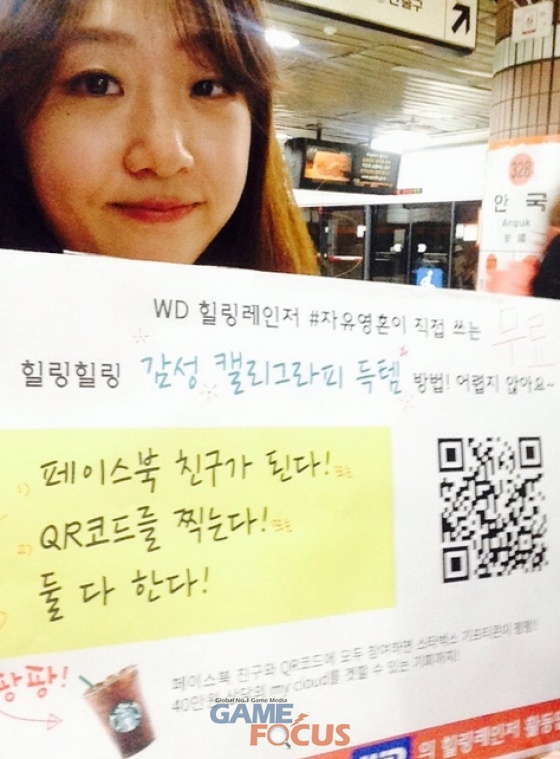 328
안국
Anguk
安國
WD 힐링레인저 #자유영혼이 직접 쓰는 무료
힐링힐링 감성 캘리그라피 득템 방법! 어렵지 않아요~
1) 페이스북 친구가 된다! 또는
2) QR코드를 찍는다! 또는
둘 다 한다!
팡팡!
페이스북 친구와 QR코드에 모두 참여하면 스타벅스 기프티콘이 팡팡!
40만원 상당의 my cloud를 겟할 수 있는 기회까지!
Global No.1 Game Media
GAME
FOCUS
의 힐링레인저 활동